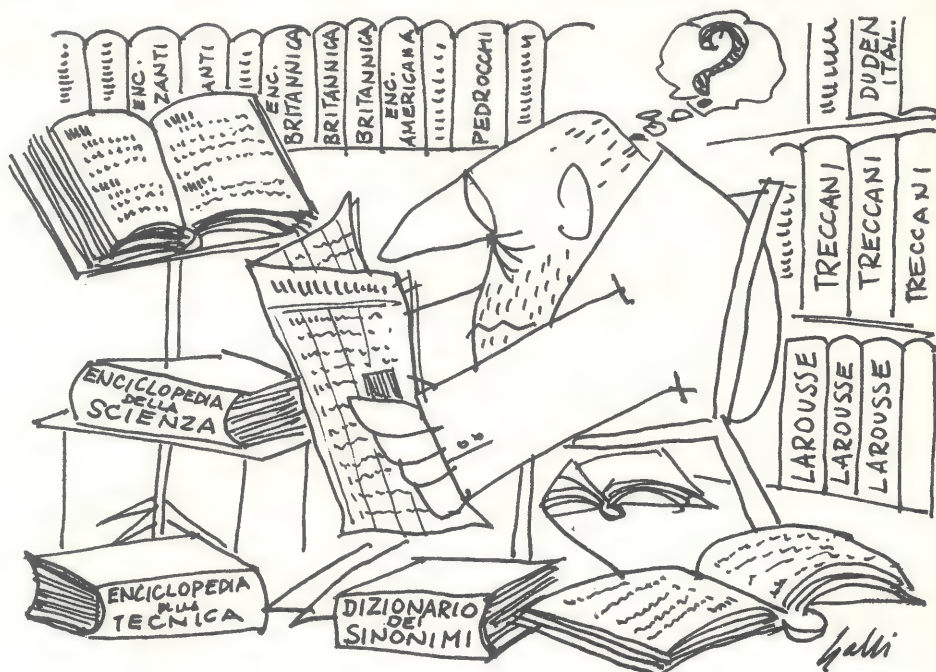 ENC.
ZANTI
ANTI
ENC.
BRITANNICA
BRITANNICA
BRITANNICA
ENC.
AMERICANA
PEDROCCHI
?
DUDEN
ITAL.
TRECCANI
TRECCANI
TRECCANI
LAROUSSE
LAROUSSE
LAROUSSE
ENCICLOPEDIA
DELLA
SCIENZA
ENCICLOPEDIA
DELLA
TECNICA
DIZIONARIO
DEI
SINONIMI
Galli